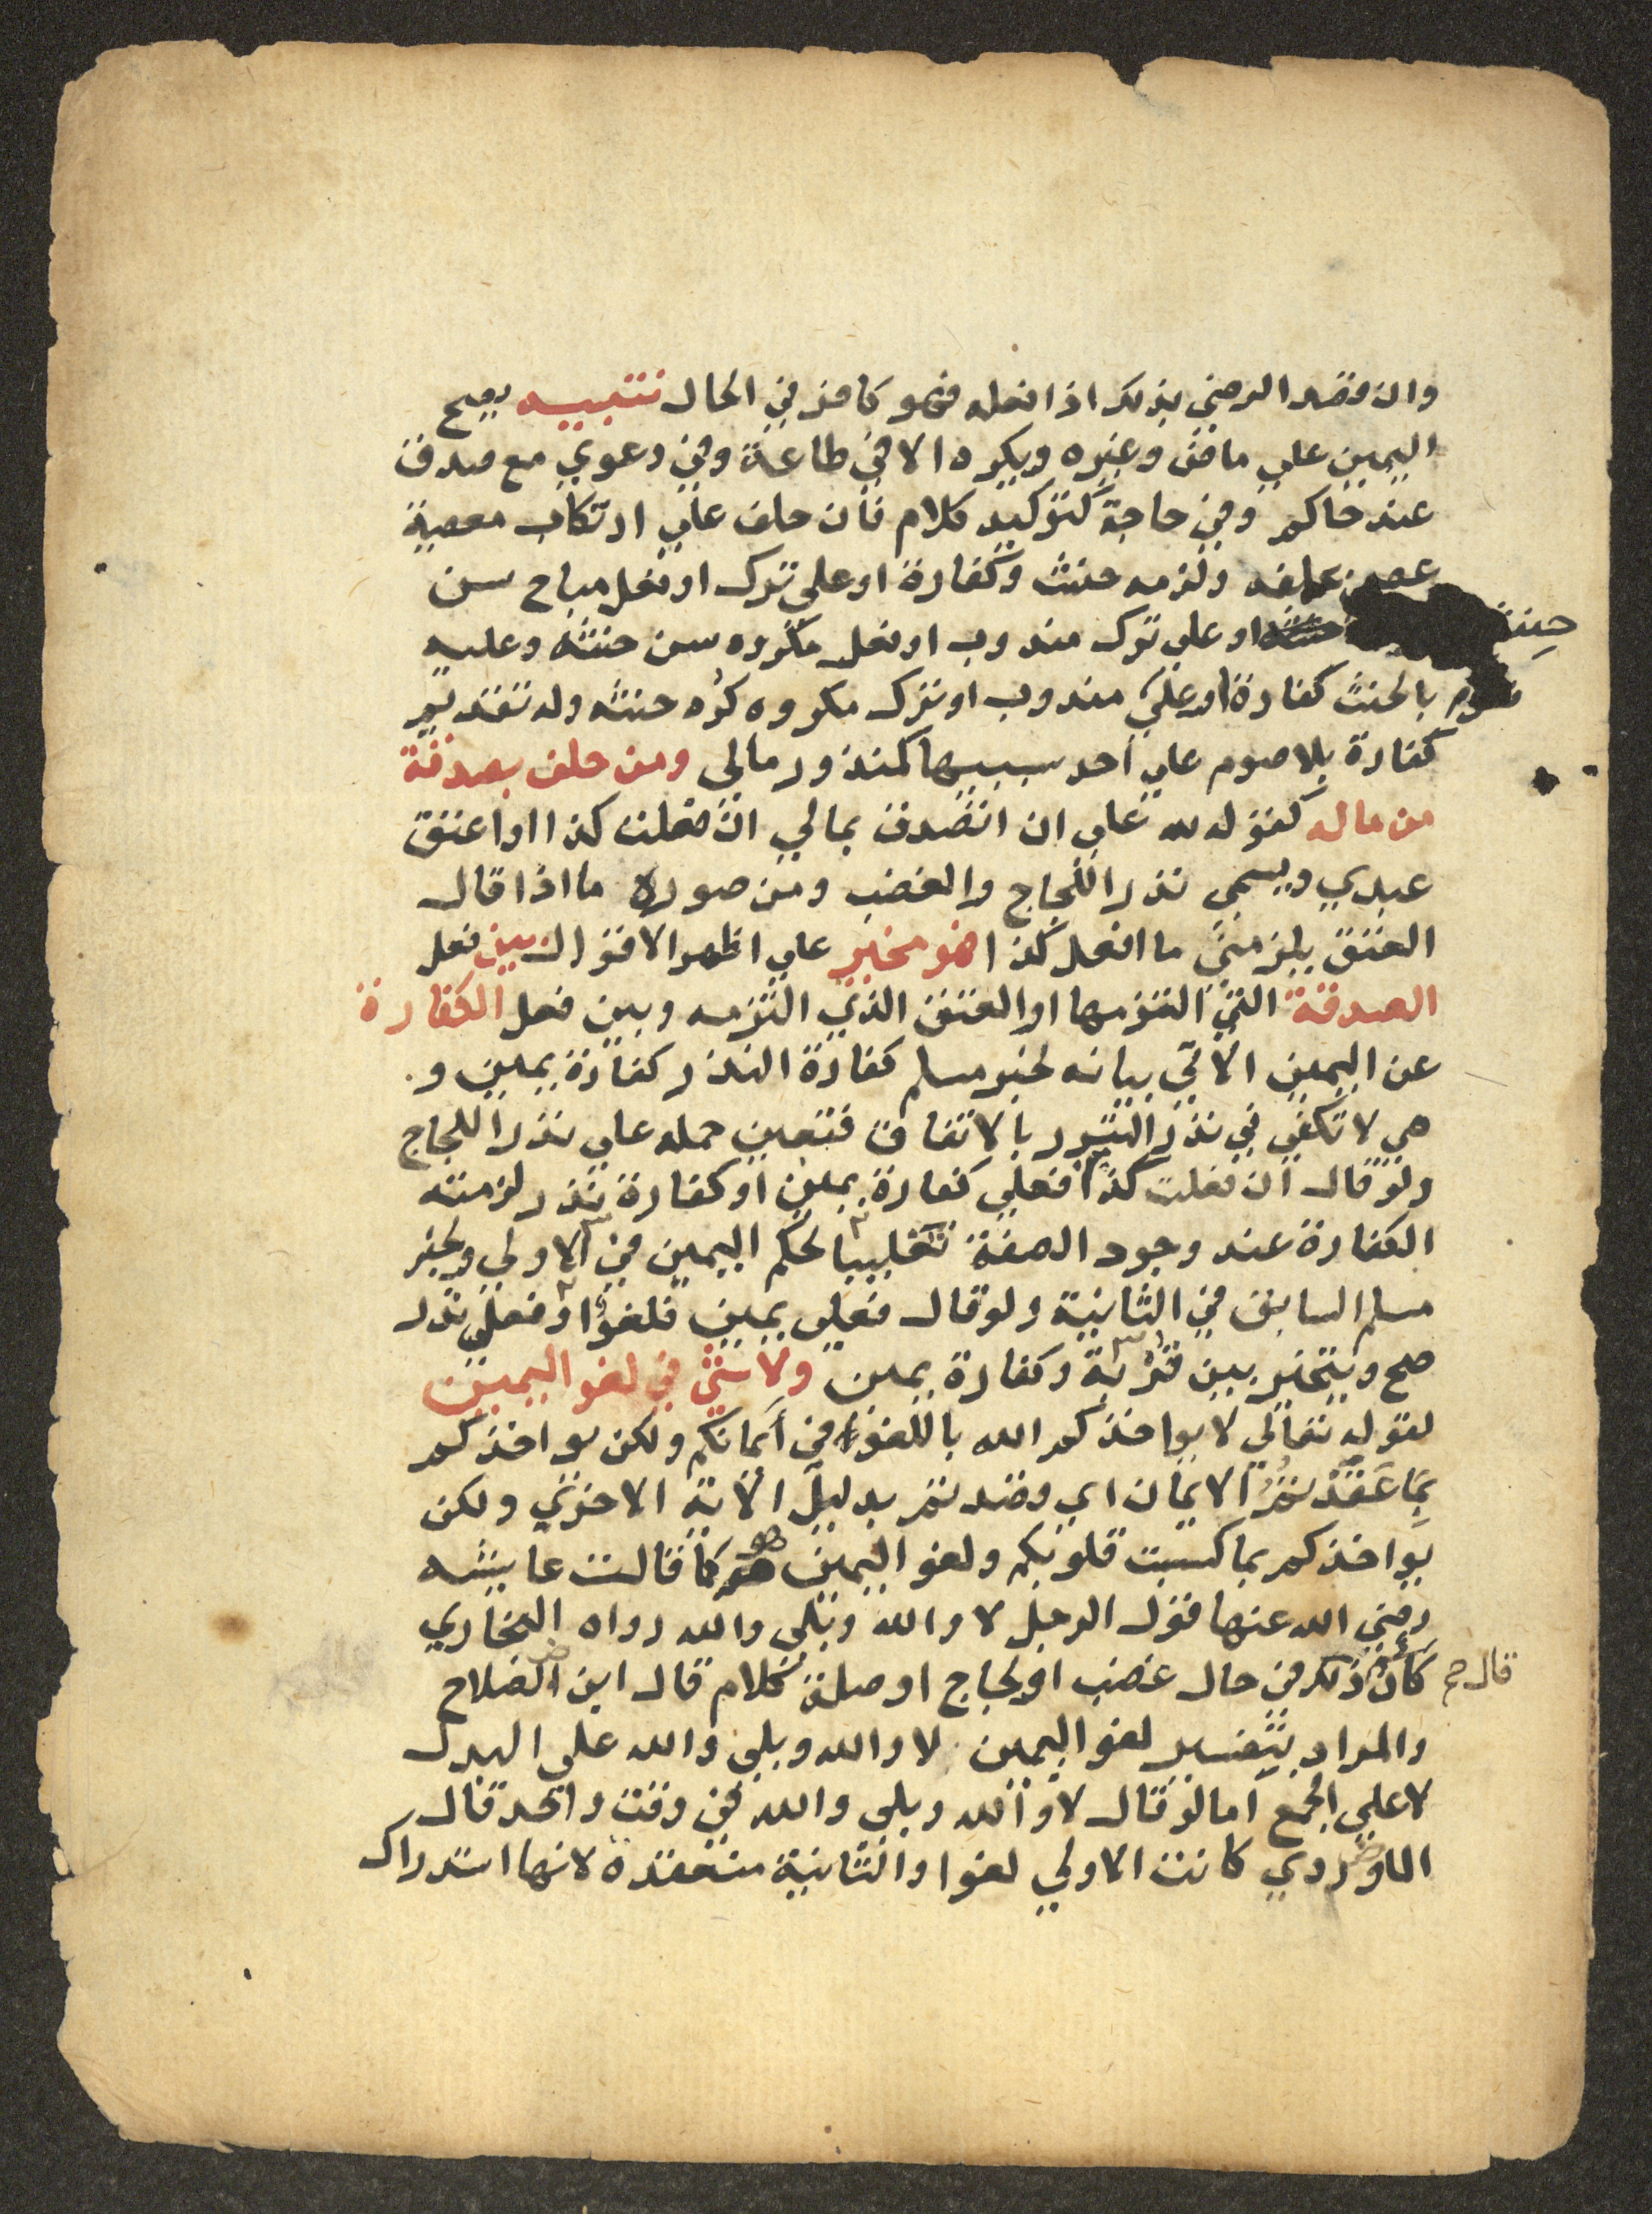 وان قصد الرضي بذلك اذا فعله فهو كافر في الحال تنبيه يصح
اليمين علي ماض وغيره ويكره الا في طاعة وفي دعوي مع صدق
عند حاكم وفي حاجة كتوكيد كلام فان حلف علي ارتكاب معصية
عصي بحلفه ولزمه حنث وكفارة او علي ترك او فعل مباح سن
حنثه او علي ترك مندوب او فعل مكروه سن حنثه وعليه
بالحنث كفارة او علي مندوب او ترك مكروه كره حنثه وله تقديم
كفارة بلا صوم علي احد سببيها كمنذور مالي ومن حلف بصدقة
من ماله كقوله لله علي ان اتصدق بمالي ان فعلت كذا او اعتق
عبدي ويسمي نذر اللجاج والغضب ومن صوره ما اذا قال
العتق يلزمني ما افعل كذا فهو مخير علي اظهر الاقوال بين فعل
الصدقة التي التزمها او العتق الذي التزمه وبين فعل الكفارة
عن اليمين الآتي بيانه لخبر مسلم كفارة النذر كفارة يمين و
هي لا تكفي في نذر التبرر بالاتفاق فتعين حمله علي نذر اللجاج
ولو قال ان فعلت كذا فعلي كفارة يمين او كفارة نذر لزمته
الكفارة عند وجود الصفة تغليبا لحكم اليمين في الاولي ولخبر
مسلم السابق في الثانية ولو قال فعلي يمين فلغو او فعلي نذر
صح ويتخير بين قربة وكفارة يمين ولا شيء في لغو اليمين
لقوله تعالي لا يواخذكم الله باللغو في أيمانكم ولكن يواخذكم
بما عقدتم الايمان اي قصدتم بدليل الآية الاخري ولكن
يواخذكم بما كسبت قلوبكم ولغو اليمين هو كما قالت عايشه
رضي الله عنها قول الرجل لا والله وبلي والله رواه البخاري
كأن قال ذلك في حال غضب او لجاج او صلة كلام قال ابن الصلاح
والمراد بتفسير لغو اليمين لا والله وبلي والله علي البدل
لا علي الجمع اما لو قال لا والله وبلي والله في وقت واحد قال
الماوردي كانت الاولي لغوا والثانية منعقدة لانها استدراك